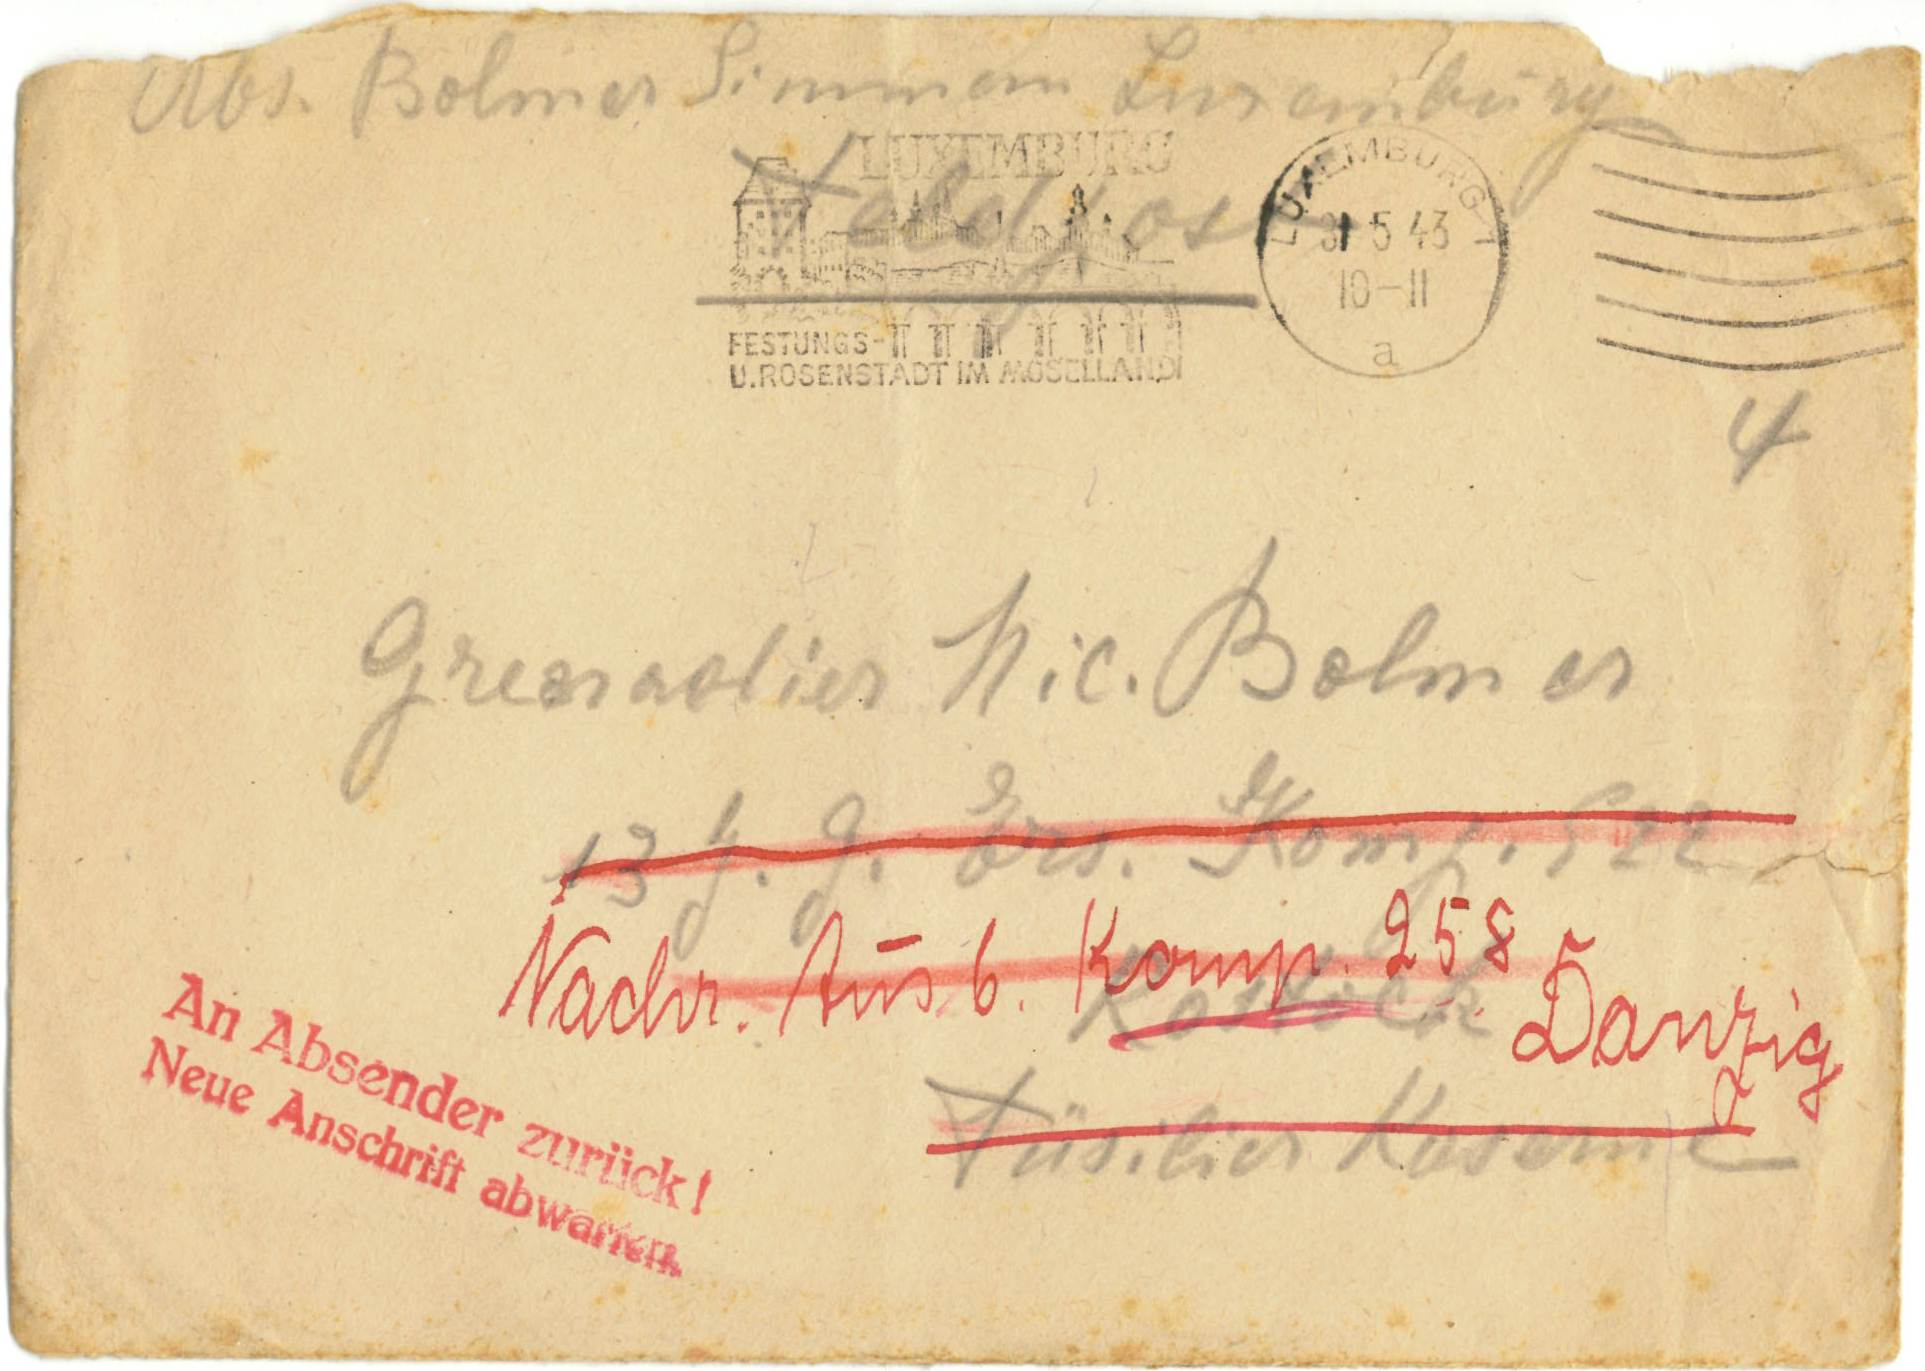 Abs. Bolmer Simmern Luxemburg
LUXEMBURG
Feldpost
LUXEMBURG 1
31 5 43
10-11
a
FESTUNGS-
U. ROSENSTADT IM MOSELLAND
4
Grenadier Nic. Bolmer
13 J. G. Ers. Komp. 522
Nachr. Ausb. Komp. 258 Danzig
Rostock
Füsilier Kaserne
An Absender zurück!
Neue Anschrift abwarten.